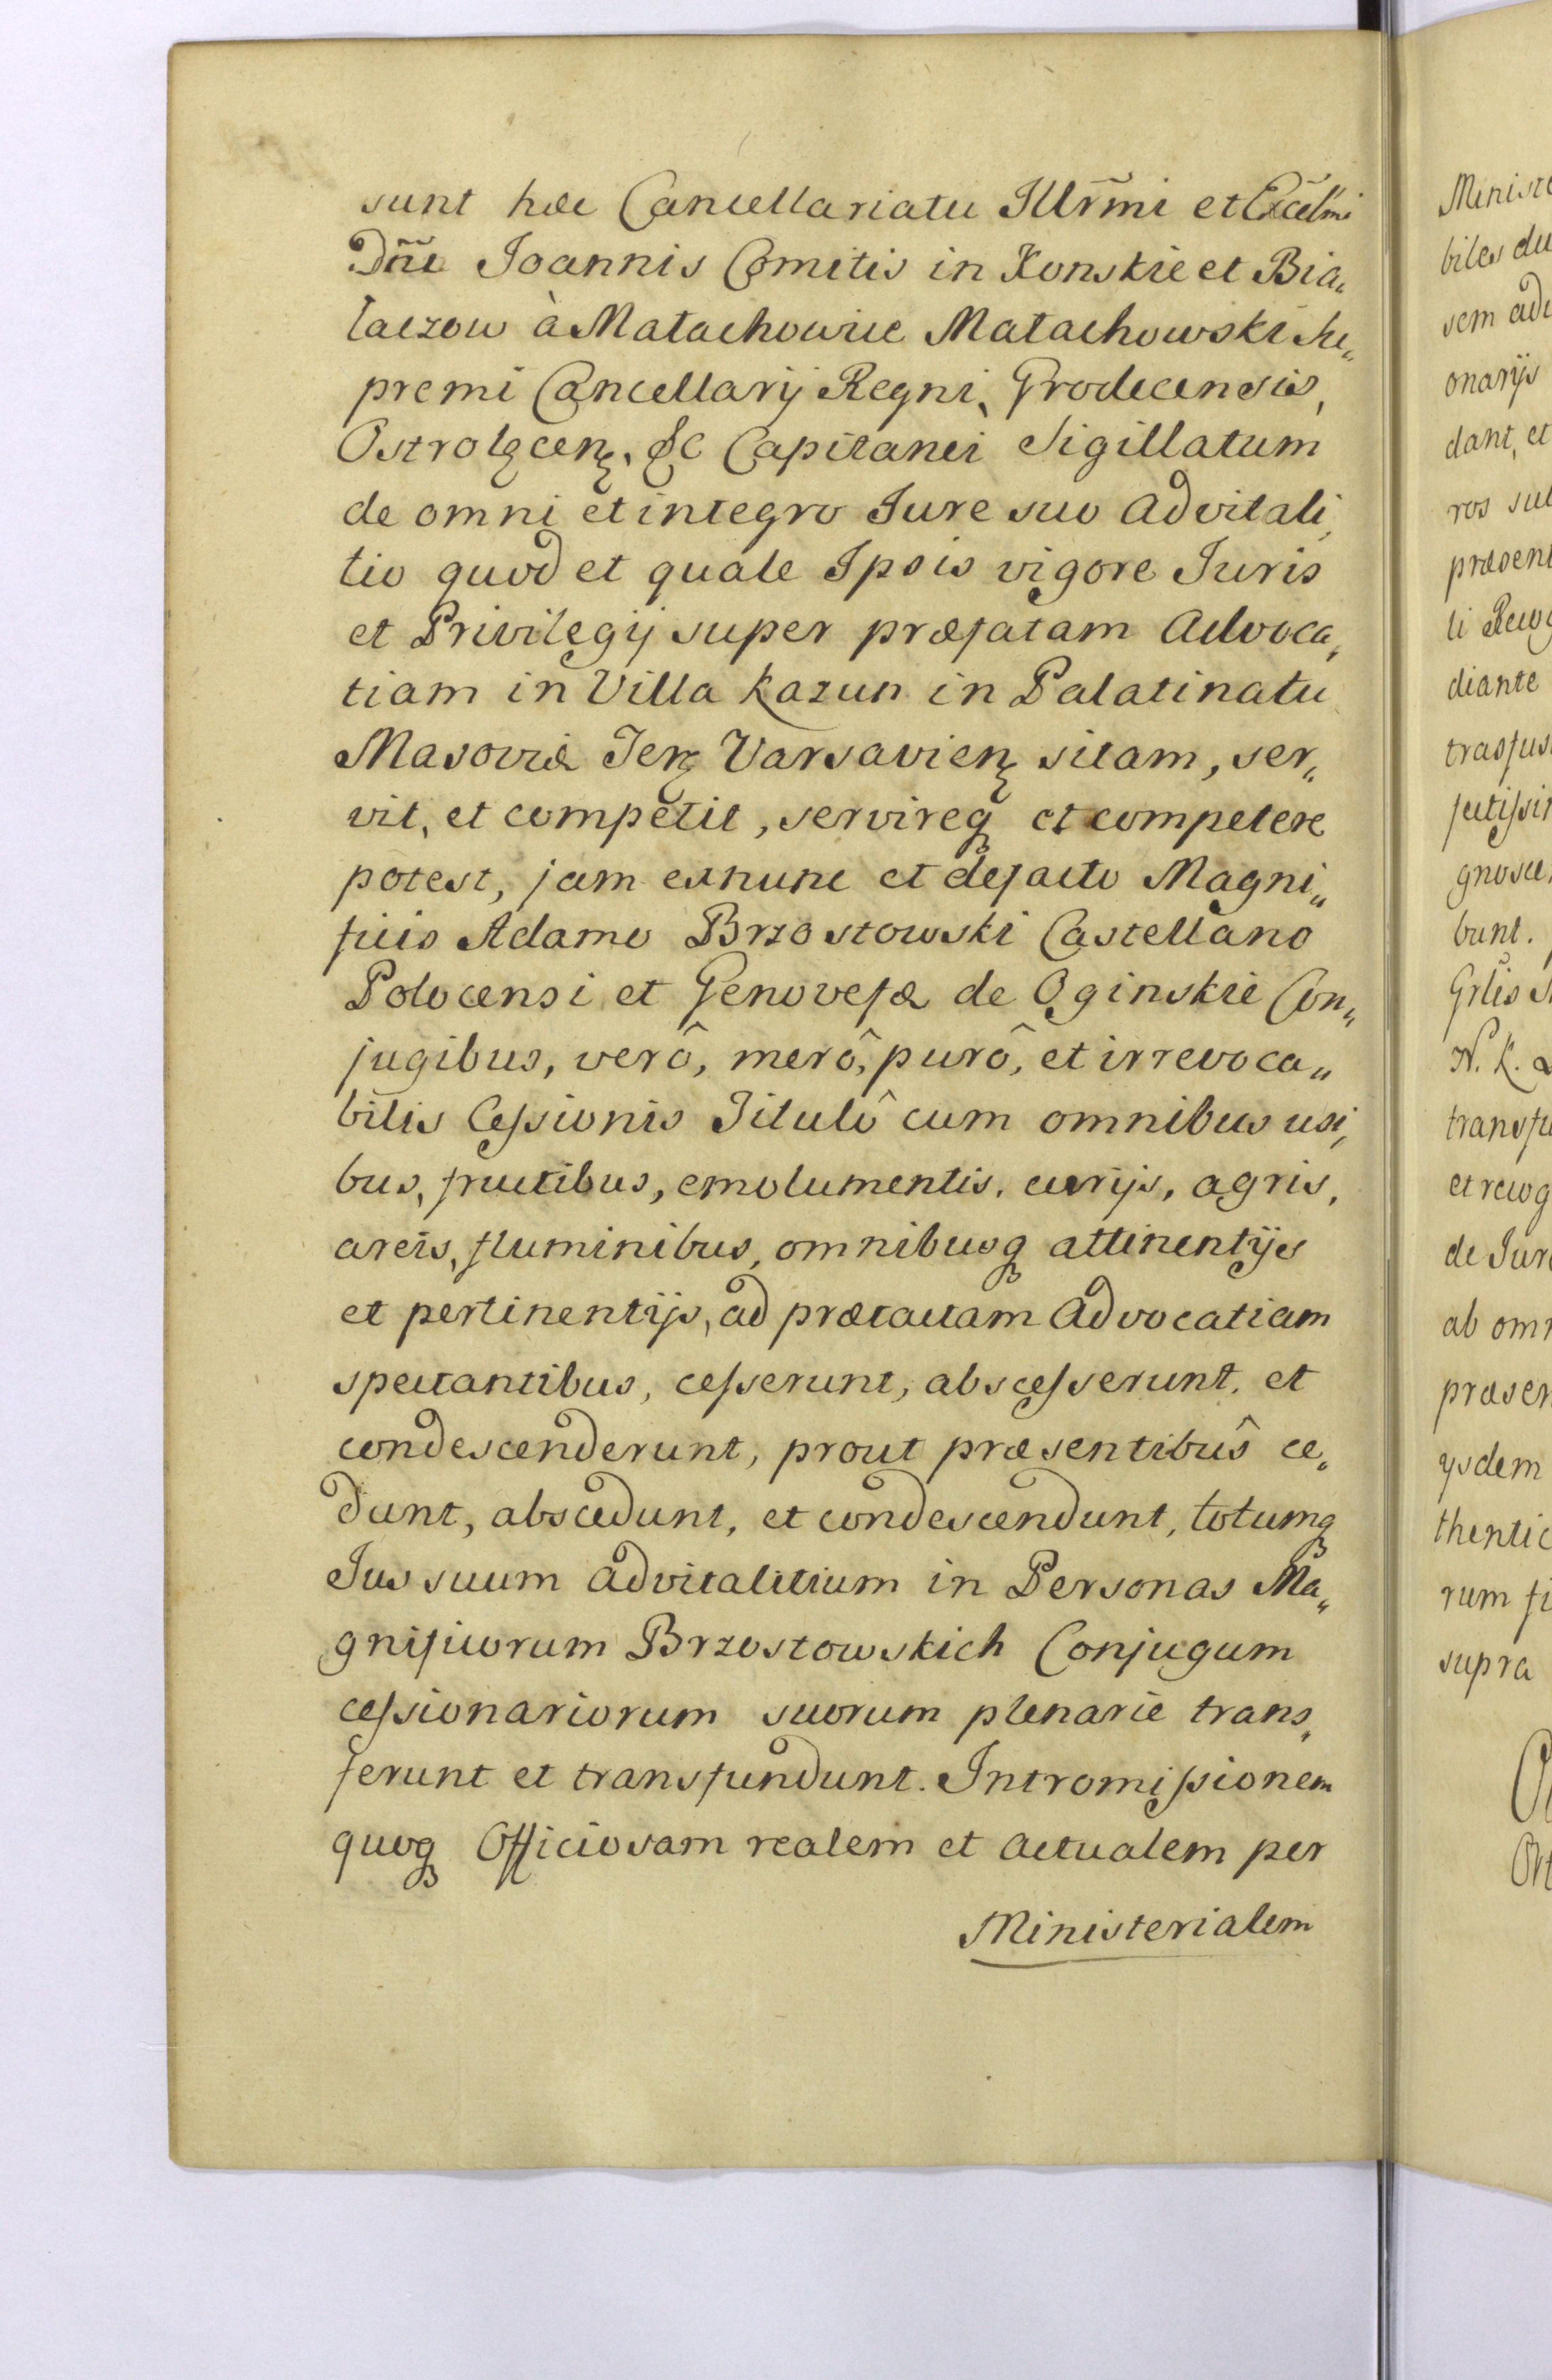 sunt hac Cancellariatu Illr̃mi et Excel̃mi
Dñi Joannis Comitis in Konskie et Bia„
łaczow à Małachowice Małachowski Su„
premi Cancellarij Regni, Grodecensis,
Ostrołęcen̨. &c Capitanei Sigillatum
de omni et integro Jure suo advitali„
tio quod et quale Ipsis vigore Juris
et Privilegij super præfatam Advoca„
tiam in Villa Kazun in Palatinatu
Masoviæ Ter̨ Varsavien̨ sitam, ser„
vit, et competit, servireq́ et competere
potest, jam exnunc et defacto Magni„
ficis Adamo Brzostowski Castellano
Polocensi et Genovefæ de Oginskie Con„
jugibus, verô, merô, purô, et irrevoca„
bilis Cessionis Titulô cum omnibus usi„
bus, fructibus, emolumentis, curijs, agris,
areis, fluminibus, omnibusq́ attinentijs
et pertinentijs, ad prætactam Advocatiam
spectantibus, cesserunt, abscesserunt, et
condescenderunt, prout præsentibûs ce„
dunt, abscedunt, et condescendunt, totumq́
Jus suum advitalitium in Personas Ma„
gnificorum Brzostowskich Conjugum
cessionariorum suorum plenarie trans„
ferunt et transfundunt. Intromissionem
quoq́ Officiosam realem et actualem per
Ministerialem
Ministe
biles du
sem adv
onarijs
dant, et
ros su
præsent
ti Recog
diante
trasfus
fectissi
gnosce
bunt.
Grlis S
N. K.
transfu
et recog
de Jure
ab omn
præsen
ijsdem
thentic
rum fi
supra